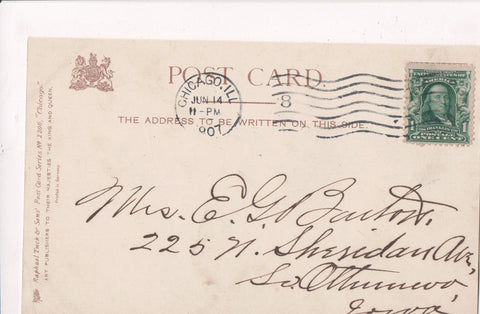 POST CARD
THE ADDRESS TO BE WRITTEN ON THIS SIDE.
CHICAGO, ILL.
JUN 14
11-PM
1907
8
UNITED STATES OF AMERICA
FRANKLIN
ONE CENT
Raphael Tuck & Sons' Post Card Series No. 1206, "Chicago."
ART PUBLISHERS TO THEIR MAJESTIES THE KING AND QUEEN.
Printed in Germany
Mrs. E. G. Barton.
225 N. Sheridan Ave,
So Ottumwa,
Iowa